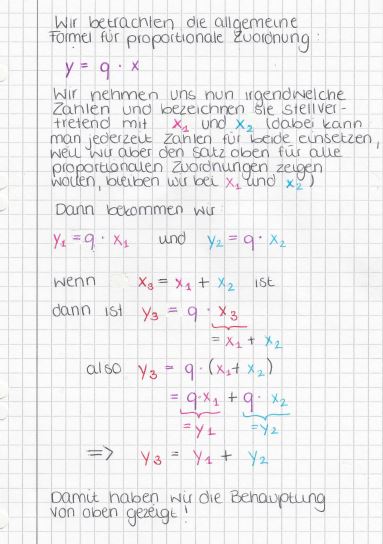 Wir betrachten die allgemeine
Formel für proportionale Zuordnung:
y = q · x
Wir nehmen uns nun irgendwelche
Zahlen und bezeichnen sie stellver-
tretend mit x₁ und x₂ (dabei kann
man jederzeit Zahlen für beide einsetzen,
weil wir aber den Satz oben für alle
proportionalen Zuordnungen zeigen
wollen, bleiben wir bei x₁ und x₂)
Dann bekommen wir:
y₁ = q · x₁ und y₂ = q · x₂
wenn x₃ = x₁ + x₂ ist
dann ist y₃ = q · x₃
= x₁ + x₂
also y₃ = q · (x₁ + x₂)
= q · x₁ + q · x₂
= y₁ = y₂
=> y₃ = y₁ + y₂
Damit haben wir die Behauptung
von oben gezeigt!